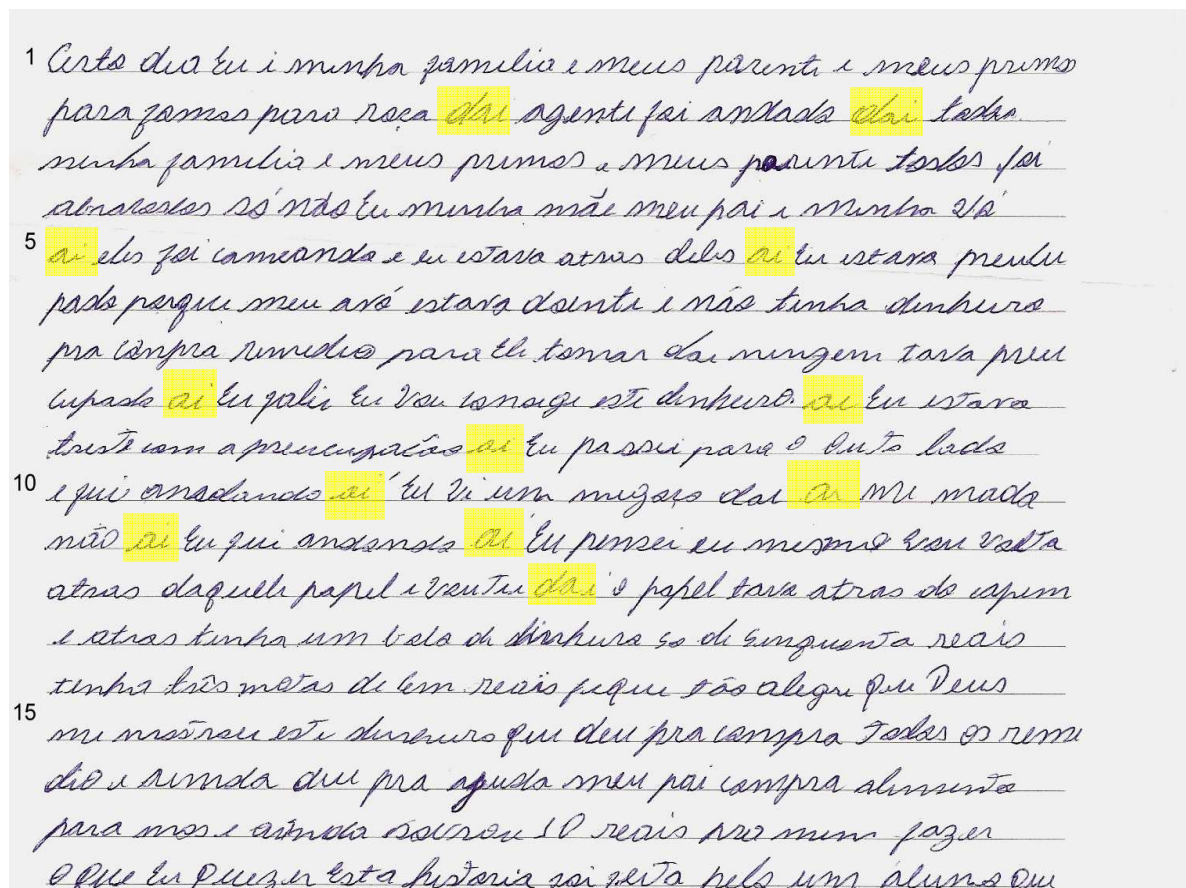 1 Certo dia Eu i minha familia e meus parente e meus primo
para famos para roça dai agente foi andado dai toda
minha familia e meus primos e meus parente todos foi
abracados só não Eu minha mãe meu pai e minha vó
5 ai eles foi cameando e eu estava atras deles ai Eu estava preucu
pado porque meu avó estava doente e não tinha dinheiro
pra conpra remedio para Ele tomar dai ningem tava preu
cupado ai Eu falir Eu Vou consegi este dinheiro. ai Eu estava
triste com a preucupação ai Eu passei para o outo lado
10 e fui anadando ai Eu Vi um dai ai me mada
não ai Eu fui andando ai Eu pensei eu mesmo vou volta
atras daquele papel e voutei dai o papel tava atras do capim
e atras tinha um bolo de dinheiro so de Sinquenta reais
tinha três notas de Cem reais fiquei tão alegre que Deus
15 me mostrou este dinheiro que deu pra compra Todos os reme
dio e ainda deu pra ajuda meu pai compra alimento
para nos e ainda sobrou 10 reais pra mim fazer
o que Eu Quezer Esta historia foi feita pelo um aluno que